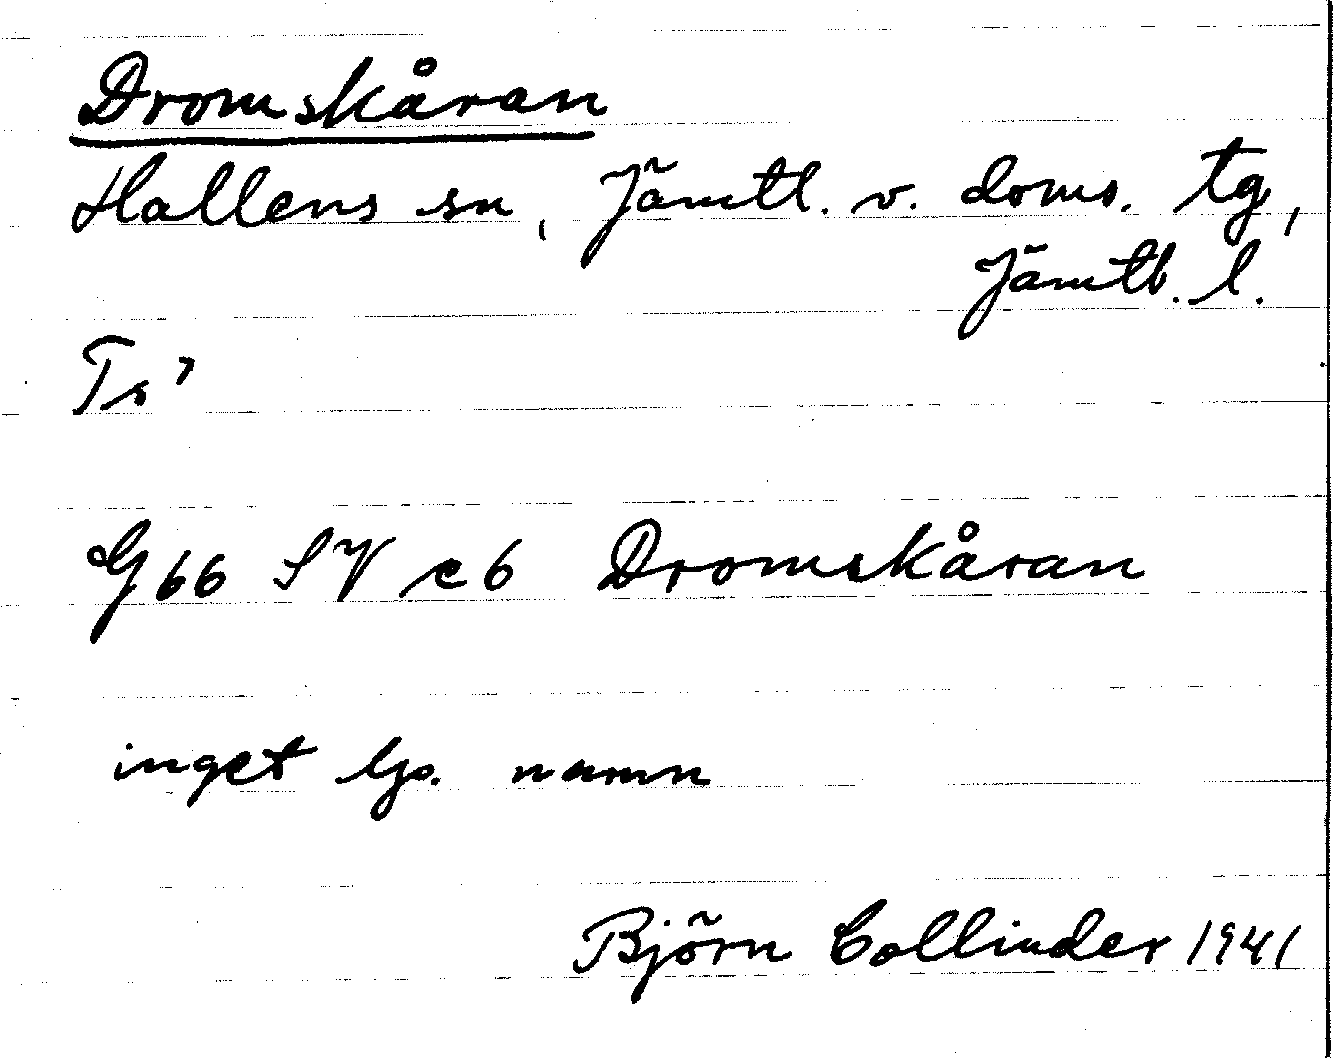 Dromskåran
Hallens sn, Jämtl. v. doms. tg,
Jämtl. l.
Ts'
G66 SV c6 Dromskåran
inget lp. namn
Björn Collinder 1941